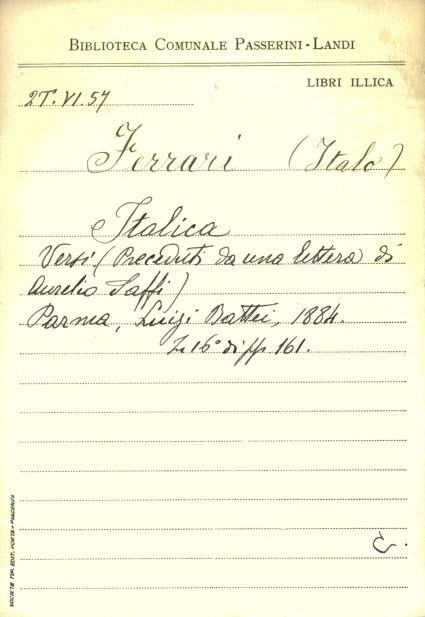 BIBLIOTECA COMUNALE PASSERINI-LANDI
LIBRI ILLICA
2T. VI. 57
Ferrari (Italo)
Italica
Versi (Preceduti da una lettera di
Aurelio Saffi)
Parma, Luigi Battei, 1884.
In 16° di pp. 161.
C.
SOCIETÀ TIP. EDIT. PORTA - PIACENZA